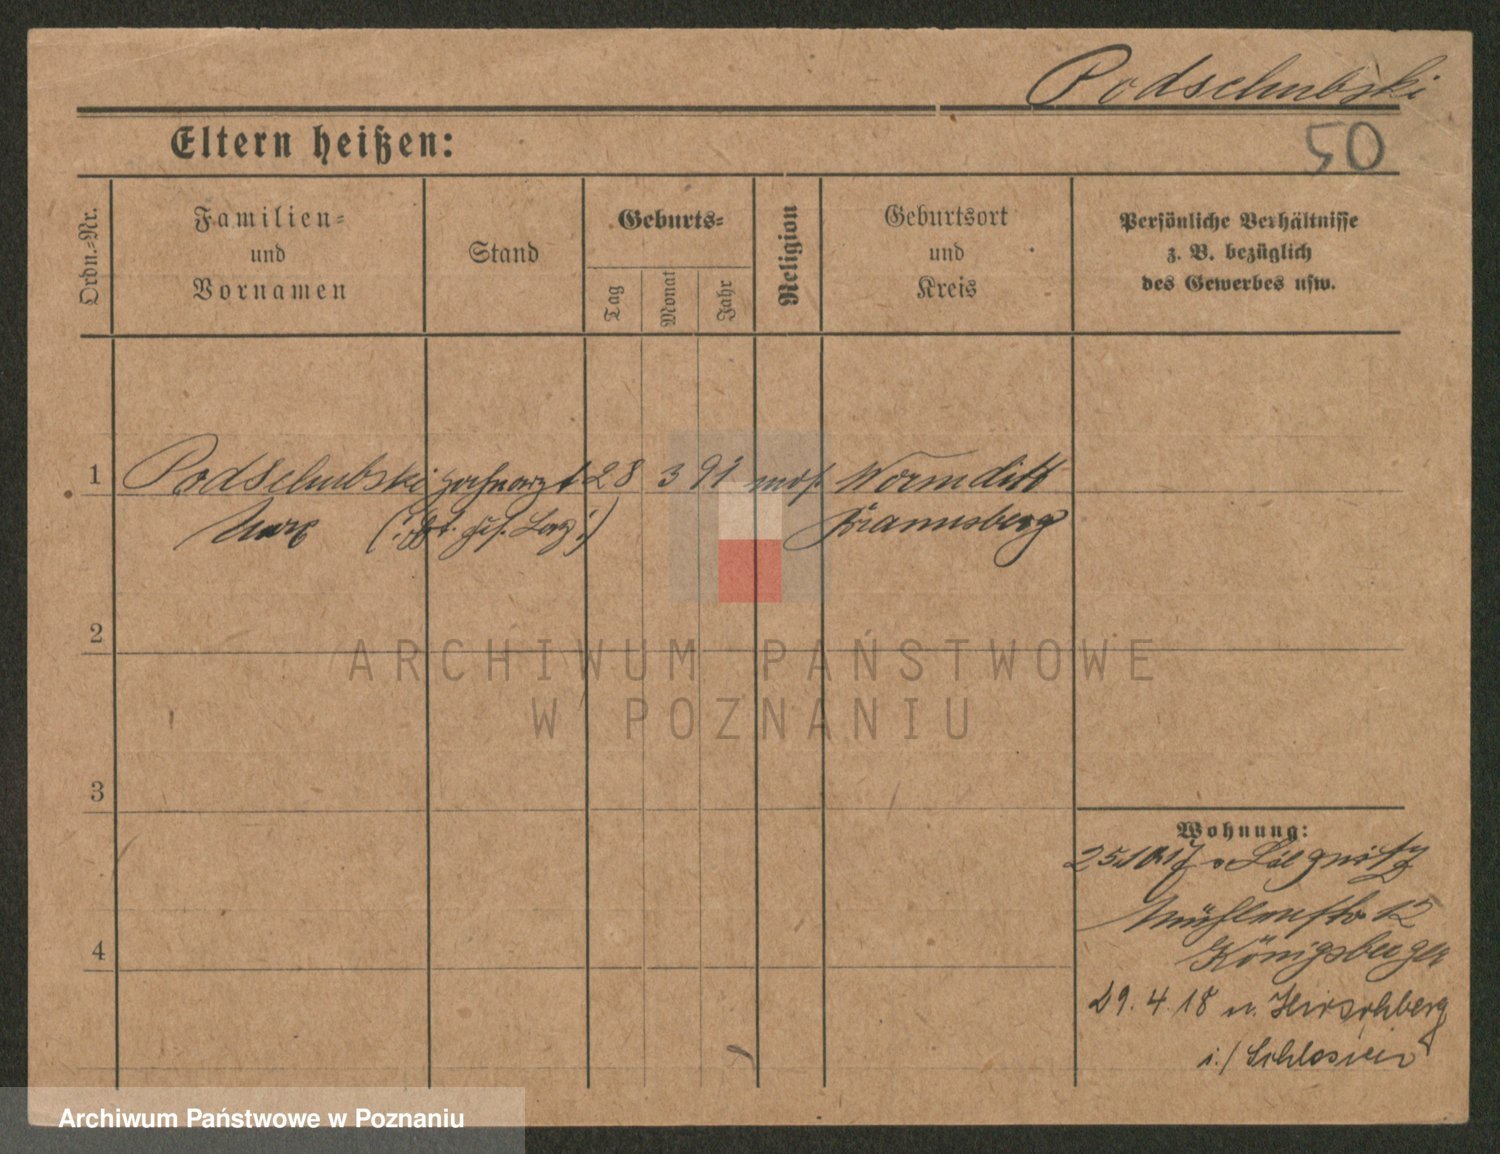 Podschubski
50
Eltern heißen:
Ordn.-Nr.
Familien-
und
Vornamen
Stand
Geburts-
Tag
Monat
Jahr
Religion
Geburtsort
und
Kreis
Persönliche Verhältnisse
z. B. bezüglich
des Gewerbes usw.
1 Podschubski Zahnarzt 28 3 91 mos. Wormditt
Max Braunsberg
2
ARCHIWUM PAŃSTWOWE
W POZNANIU
3
Wohnung:
25.10.17 v. Liegnitz
Mühlenstr. 12
Königsberger
4
29. 4. 18 n. Hirschberg
i./ Schlesien
Archiwum Państwowe w Poznaniu